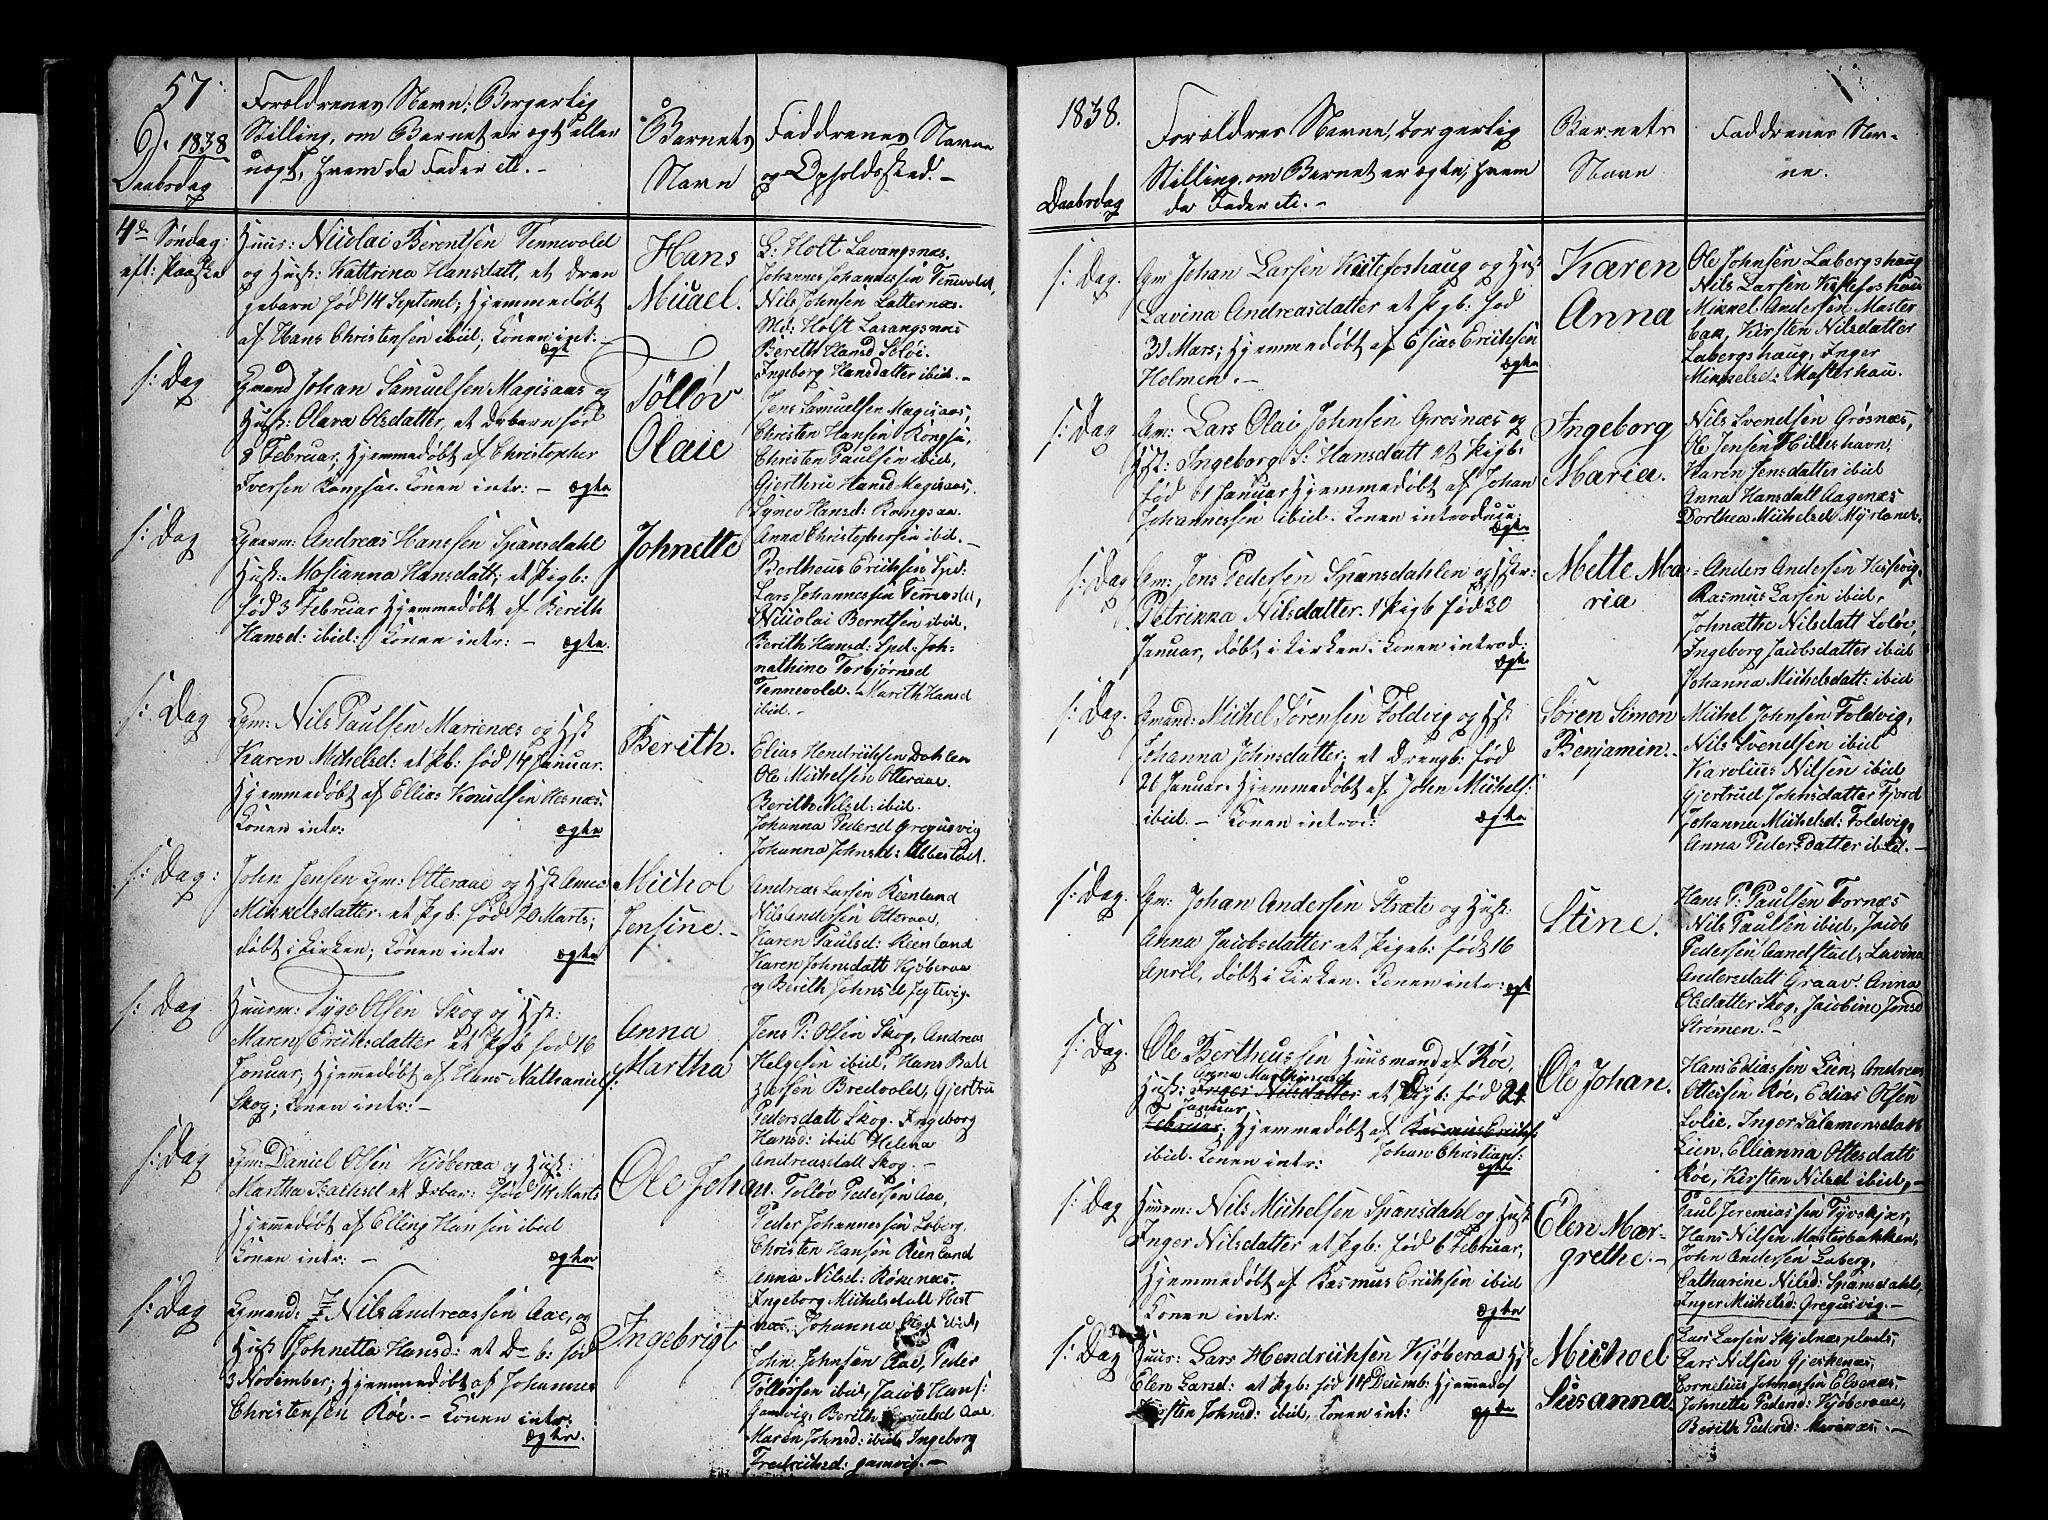 57.
D. 1838
Daabsdag
Forældrenes Navn; Borgerlig
Stilling, om Barnet er ægt eller
uægt, hvem da Fader etc. -
Barnets
Navn
Faddrenes Navne
og Opholdssted. -
4de Søndag
eft: Paaske
Huus: Nicolai Berentsen Tennevold
og Hust: Kattrina Hansdatt, et Dren
gebarn fød 14 Septembl; Hjemmedøbt
af Hans Christensen ibid; Konen int: -
ægte
Hans
Micael.
L: Holt Lavangsnæs,
Johannes Johannessen Tennevold,
Nils Johnsen Latternæs.
Md: Holst Lavangsnæs
Berith Hansd Soløi.
Ingeborg Hansdatter ibid. -
s: Dag
Gmand Johan Samuelsen Magisaas og
Hust: Olava Olsdatter, et Drbarn fød
8 Februar, Hjemmedøbt af Christopher
Iversen Rongsae. Konen intr: - ægte
Tølløv
Olaie
Jens Samuelsen Magisaas,
Christen Hansen Rongsa,
Christen Paulsen ibid,
Gjerthru Hansd Magisaas.
Synev Hansd: Rongsaa.
Anna Christophersen ibid. -
s: Dag
Gaarm: Andreas Hanssen Spansdahl
Hust: Mosianna Hansdatt; et Pigb:
fød 3 Februar Hjemmedøbt af Berith
Hansd: ibid: Konen intr: - ægte.
Johnette
Bertheus Erichsen Spd:
Lars Johannessen Tennevold,
Nicolai Berntsen ibid,
Berith Hansd: Spd: Joh-
nathine Torbjørnsd
Tennevold. Marith Hansd
ibid. -
s: Dag
Gm: Nils Paulsen Marienæs og Hst
Karen Michelsd: et Pb: fød 14 Januar.
Hjemmedøbt af Ellias Knudsen Hesnæs.
Konen intr: ægte
Berith.
Elias Hendrichsen Dahlen
Ole Michelsen Otteraae.
Berith Nilsd: ibid.
Johanna Pedersd Gregusvig
Johanna Johnsd: Elbestad.
s: Dag:
John Jensen Gm: Otteraae og Hst Anne
Mikkelsdatter. et Pgb: fød 20 Marts;
døbt i Kirken; Konen intr: ægte
Michol
Jensine. -
Andreas Larsen Rienland
Nils Andersen Otteraae,
Karen Paulsd: Rienland
Karen Johnsdatt Kjøberaa
og Berith Johnsd Jegtevig.
s: Dag
Huusm: Tyge Olsen Skog og Hst:
Maren Erichsdatter et Pigb fød 16
Januar, Hjemmedøbt af Hans Nathaniels
Skog; Konen intr: -
Anna
Martha
Jens P: Olsen Skog, Andreas
Helgesen ibid, Hans Balt
zersen Bredvold, Gjertru
Pedersdatt Skog. Ingeborg
Hansd: ibid Helena
Andreasdatt Skog. -
s: Dag
Gm: Daniel Olsen Kjøberaa og Hust:
Martha Isachsd et Drbar: fød 14 Marts
Hjemmedøbt af Elling Hansen ibid
Konen intr: - ægte
Ole Johan.
Tolløv Pedersen Aae,
Peder Johannessen Loberg.
Christen Hansen Rienland
Anna Nilsd: Røkenæs.
Ingeborg Michelsdatt Hest
næs, Johanna Olsd ibid,
s: Dag
Gmand: Nils Andreassen Aae, og
Hust Johnetta Hansd: et D-b: fød
3 November; Hjemmedøbt af Johannes
Christensen Røe. - Konen intr:
ægte.
Ingebrigt
John Johnsen Aae, Peder
Tølløvsen ibid, Jacob Hans:
Gamvig: Berith Samuelsd Aae
Maren Johnsd: ibid, Ingeborg
Fredrichsd: gamvig. -
1838.
Daabsdag
Forældres Navne, borgerlig
Stilling, om Barnet er ægte, hvem
da Fader etc. -
Barnets
Navn
Faddrenes Nav-
ne.
s: Dag.
Gm Johan Larsen Kistefoshaug og Hust
Lavina Andreasdatter et Pgb: fød
31 Mars; Hjemmedøbt af Esias Erichsen
Holmen. - ægte
Karen
Anna
Ole Johnsen Labergshaug
Nils Larsen Kistefoshaug
Mikkel Andersen Master
bak, Kirsten Nilsdatter
Labergshaug, Inger
Mikkelsd: Masterbak.
s: Dag
Gm: Lars Olai Johnsen Grosnæs og
Hst: Ingeborg S: Hansdatt et Pigb:
fød 1 Januar Hjemmedøbt af Johan
Johannessen ibid. Konen introduce:
ægte
Ingeborg
Maria.
Nils Svendsen Grøsnæs,
Ole Jensen Hilleshavn,
Karen Jensdatter ibid
Anna Hansdatt Aagenæs
Dorthea Michelsd Myrland.
s: Dag
Gm: Jens Pedersen Spansdahlen og Hstr:
Petrikka Nilsdatter. 1 Pigb fød 30
Januar, døbt i Kirken. Konen introd:
ægte
Mette Ma
ria
Anders Andersen Hessvig,
Rasmus Larsen ibid,
Johnæthe Nilsdatt Loløe,
Ingeborg Jacobsdatter ibid
Johanna Michelsdatt: ibid
s: Dag.
Gmand: Michel Sørensen Foldvig og Hst:
Johanna Johnsdatter; et Drengb: fød
26 Januar. Hjemmedøbt af John Michels:
ibid. - Konen introd: ægte
Søren Simon
Benjamin. -
Michel Johnsen Foldvig,
Nils Svendsen ibid
Karolius Nilsen ibid
Gjertrud Johnsdatter Fjord
Johanna Michelsd: Foldvig,
Anna Pedersdatter ibid. -
s: Dag
Gm: Johan Andersen Stræte og Hust:
Anna Jacobsdatter et Pigeb: født 16
April, døbt i Kirken. Konen intr: ægt
Stine.
Hans P: Paulsen Fornæs
Nils Paulsen ibid, Jacob
Pedersen Sandstad, Lavina
Andersdatt Graav. Anna
Olsdatter Skog, Jacobine Jonsd
Strømen. -
s: Dag.
Ole Bertheussen Huusmand af Røe,
Anna Marthinusd
Hust: Inger Nilsdatter et Drgb: fød 24
Januar
Februar; Hjemmedøbt af Rasmus Erichs:
ibid. Konen intr: Johan Christians:
ægte
Ole Johan.
Hans Ediassen Lien, Andreas
Ottesen Røe, Edias Olsen
Solie, Inger Salamonsdatt
Lien, Ellianna Ottesdatt
Røe, Kirsten Nilsd ibid, -
s: Dag
Huusm: Nils Michelsen Spansdahl og Hust
Inger Nilsdatter et Pgb: fød 6 Februar,
Hjemmedøbt af Rasmus Erichsen ibid
Konen intr: ægte
Elen Mar-
grethe. -
Paul Jeremiassen Tyvskjær,
Hans Nilsen Masterbakken,
John Andersen Laberg,
Catharine Nilsd: Spansdahl,
Inger Michelsd: Gregusvig. -
s: Dag
Huus: Lars Hendrichsen Kjøberaa Hst
Elen Larsd: et Pgb: fød 14 Decemb: Hjemmedøbt af
Kirsten Johnsd: ibid, Konen int: ægte
Michoel
Susanna.
Lars Larsen Skjelnæsplads,
Lars Nilsen Gjeskenæs,
Cornelius Johnassen Elvenæs,
Johnette Pedersd: Kjøberaae,
Berith Pedersd: Marienæs. -